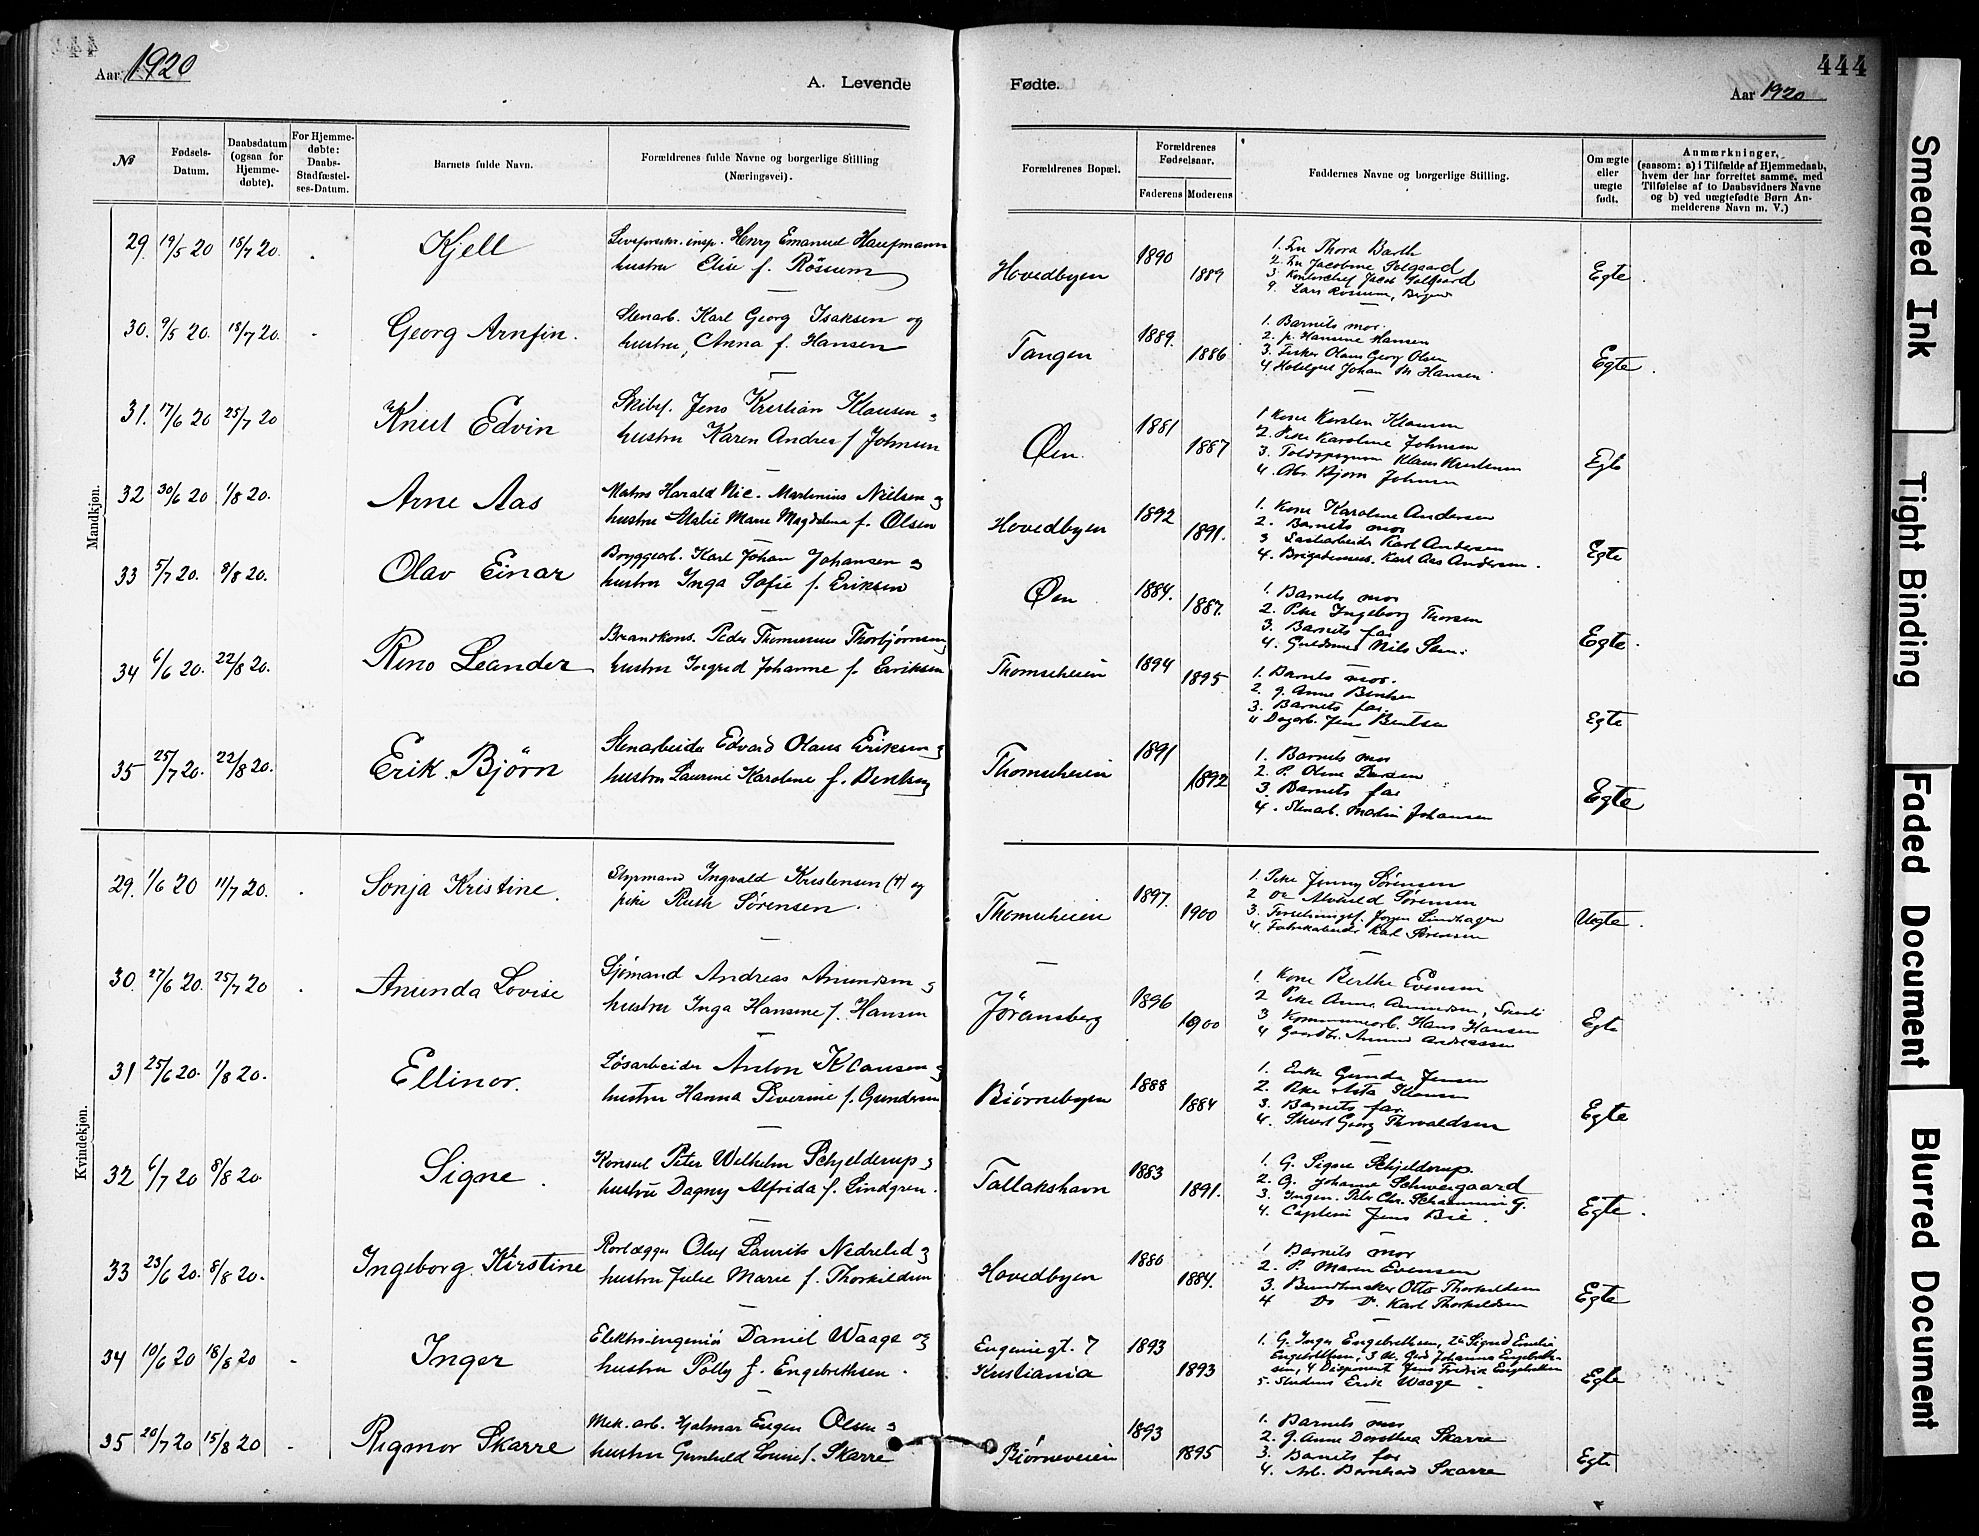 444
Aar 1920
A. Levende
Fødte.
Aar 1920
№
Fødsels-Datum.
Daabsdatum (ogsaa for Hjemme-døbte).
For Hjemme-døbte: Daabs-Stadfæstel-ses-Datum.
Barnets fulde Navn.
Forældrenes fulde Navne og borgerlige Stilling (Næringsvei).
Forældrenes Bopæl.
Forældrenes Fødselsaar.
Faderens
Moderens
Faddernes Navne og borgerlige Stilling.
Om ægte eller uægte født.
Anmærkninger, (saasom: a) i Tilfælde af Hjemmedaab, hvem der har forrettet samme, med Tilføielse af to Daabsvidners Navne og b) ved uægtefødte Børn Anmelderens Navn m. V.)
Mandkjøn.
29. 19/5 20 18/7 20. Kjell
Henry Emanuel Haufmann
hustru Elise f. Røssum
Hovedbyen 1890 1889
1. Fru Thora Barth
2. Fru Jacobine Solgaard
3. Kontorchef Jacob Solgaard
4. Lars Rossum, Bergen
Egte
30. 9/5 20. 18/7 20. Georg Arnfin.
Stenarb. Karl Georg Isaksen og
hustru, Anna f. Hansen
Tangen 1889. 1886
1. Barnets mor.
2. p. Hansine Hansen
3. Fisker Olaus Georg Olsen
4. Johan M Hansen
Egte
31. 17/6 20 25/7 20 Knut Edvin
Jens Kristian Klausen
hustru Karen Andrea f Johnsen
Øen. 1881 1887
1 Kone Karsten Klausen
2. Pike Karoline Johnsen
3. Klaus Kristensen
4. Arb. Bjørn Johnsen
Egte
32 30/6 20 1/8 20. Arne Aas
Matros Harald Nic. Martinius Nielsen
hustru Malie Marie Magdalena f. Olsen
Hovedbyen 1892 1891.
1. Kone Karoline Andersen
2. Barnets mor
3 Karl Andersen
4. Karl Aas Andersen.
Egte
33 5/7 20. 8/8 20. Olav Einar
Bryggearb. Karl Johan Johansen
hustru Inga Sofie f. Eriksen
Øen 1884. 1887.
1. Barnets mor
2. Pike Ingeborg Thorsen
3. Barnets far
4. Nils Sten.
Egte.
34 6/6 20. 22/8 20. Reno Leander
Brandkons. Peder Thorbjørnsen
hustru Ingrid Johanne f. Eriksen
Thomseheien 1894 1895
1. Barnets mor.
2. g. Anne Bentsen
3. Barnets far.
4 Dagarb. Jens Bentsen
Egte
35 25/7 20. 22/8 20. Erik Bjørn
Stenarbeider Edvard Olaus Eriksen
hustru Laurine Karoline f. Bentsen
Thomseheien 1891 1892
1. Barnets mor
2. P. Oline Larsen
3. Barnets far
4. Stenarb. Martin Johansen
Egte
Kvindekjøn.
29. 1/6 20 11/7 20. Sonja Kristine.
Styrmand Ingvald Kristensen (4) og
pike Ruth Sørensen.
Thomseheien 1897. 1900
1. Pike Jenny Sørensen
2 Do Alvhild Sørensen
3. Jørgen Lindhagen
4. Fabrikarbeider Karl Sørensen
Uegte.
30. 27/6 20. 25/7 20 Amunda Lovise
Sjømand Andreas Amundsen
hustru Inga Hansine f. Hansen
Jøransberg 1896 1900
1. Kone Berthe Evensen
2 Pike Anna Amundsen,
3 Kommunearb. Hans Hansen
4 Gaardbr. Amund Andreassen
Egte
31 25/6 20. 1/8 20. Ellinor.
Løsarbeider Anton Klausen
hustru Hanna Severine f. Gundersen
Biørnebyen 1888 1884
1. Enke Gunda Jensen
2. Pike Asta Klausen
3. Barnets far.
4. Georg Thorvaldsen
Egte
32 6/7 20 8/8 20. Signe.
Konsul Peter Wilhelm Schjelderup
hustru Dagny Alfrida f. Lindgren.
Tallakshavn 1883 1891.
1. G. Signe Schjelderup.
2. G. Johanne Schweigaard
3. Ingen. Peter Chr.
4. Captein Jens Bie.
Egte.
33 23/6 20. 8/8 20. Ingeborg Kirstine
Rørlægger Oluf Laurits Nedrelid
hustru Julie Marie f. Thorkildsen
Hovedbyen 1886 1884.
1. Barnets mor
2. P. Maren Evensen
3. Bundtmaker Otto Thorkildsen
4 Do Do. Karl Thorkildsen
Egte
34 10/6 20 18/8 20 Inger
Elektro-ingeniør Daniel Waage og
hustru Polly f. Engebrethsen.
Eugeniegt. 7
Kristiania 1893 1893
1. G. Inger Engebrethsen, 2. Sigrid Emilie
Engebrethsen, 3 Johanna Engebreth-
sen, 4 Disponent Jens Fredrik Engebrethsen
5. Students Erik Waage
Egte
35 20/7 20 15/8 20 Rigmor Skarre
Mek. arb. Hjalmar Eugen Olsen
hustru Gunhild Louise f. Skarre
Bjørneveien 1893 1895
1. Barnets mor
2. g. Anne Dorothea Skarre
3. Barnets far
4. Arb. Bernhard Skarre
Egte
Smeared Ink
Tight Binding
Faded Document
Blurred Document